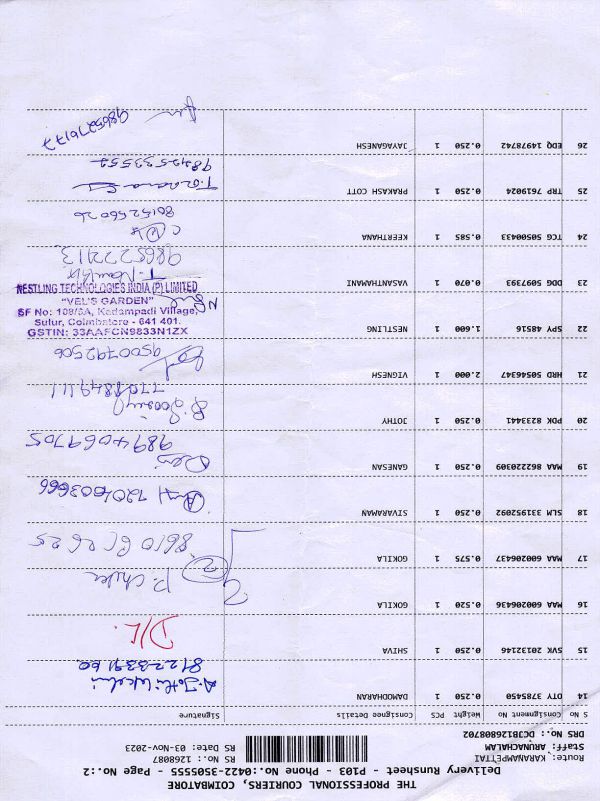 THE PROFESSIONAL COURIERS, COIMBATORE
Delivery Runsheet - P103 - Phone No.:0422-3505555 - Page No.:2
Route: KARAWAMPETTAI RS No.: 1268087
Staff: ARUNACHALAM RS Date: 03-Nov-2023
DRS No.: DC3B126808702
S No Consignment No Weight PCS Consignee Details Signature
14 OTY 3785450 0.250 1 DAMODHARAN
8122339160
15 SVK 20132146 0.250 1 SHIVA
D/L.
16 MAA 600206436 0.520 1 GOKILA
17 MAA 600206437 0.575 1 GOKILA
2
8610612625
18 SLM 331952092 0.250 1 SIVARAMAN
7201003666
19 MAA 862220309 0.250 1 GANESAN
9894069705
20 PDK 8233441 0.250 1 JOTHY
7708849111
21 HRD 50546347 2.000 1 VIGNESH
9500792506
22 SPY 48516 1.600 1 NESTLING
NESTLING TECHNOLOGIES INDIA (P) LIMITED
"VEL'S GARDEN"
SF No: 108/5A, Kadampadi Village,
Sulur, Coimbatore - 641 401.
GSTIN: 33AAFCN9833N1ZX
23 DDG 5097393 0.070 1 VASANTHAMANI
9865222113
24 TCG 50500433 0.585 1 KEERTHANA
8015256026
25 TRP 7619024 0.250 1 PRAKASH COTT
9842533552
26 EDQ 14978742 0.250 1 JAYAGANESH
9865276177